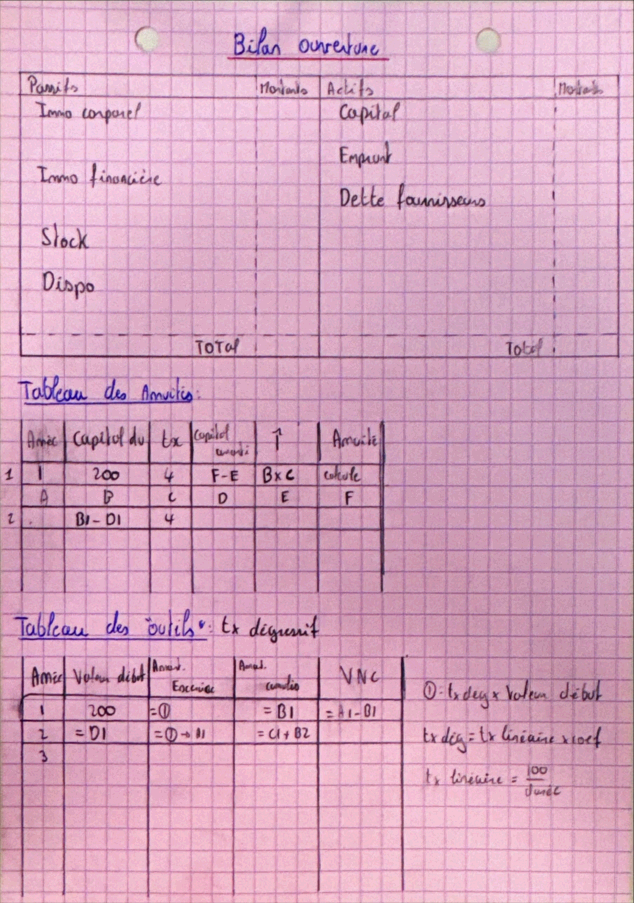 Bilan ouverture
Passifs Montants Actifs Montants
Immo corporel Capital
Emprunt
Immo financière
Dette fournisseurs
Stock
Dispo
TOTAL Total
Tableau des Annuités:
Année Capital du tx Capital I Annuité
1 1 200 4 F-E B×C calcule
A B C D E F
2 B1-D1 4
Tableau des "outils": tx dégressif
Année Valeur début Amort. Exercice Amort. cumulés VNC
1 200 =① =B1 =A1-B1
2 =D1 =①→D1 =C1+B2
3
①: tx deg x Valeur début
tx dég = tx linéaire x coef
tx linéaire = 100
durée